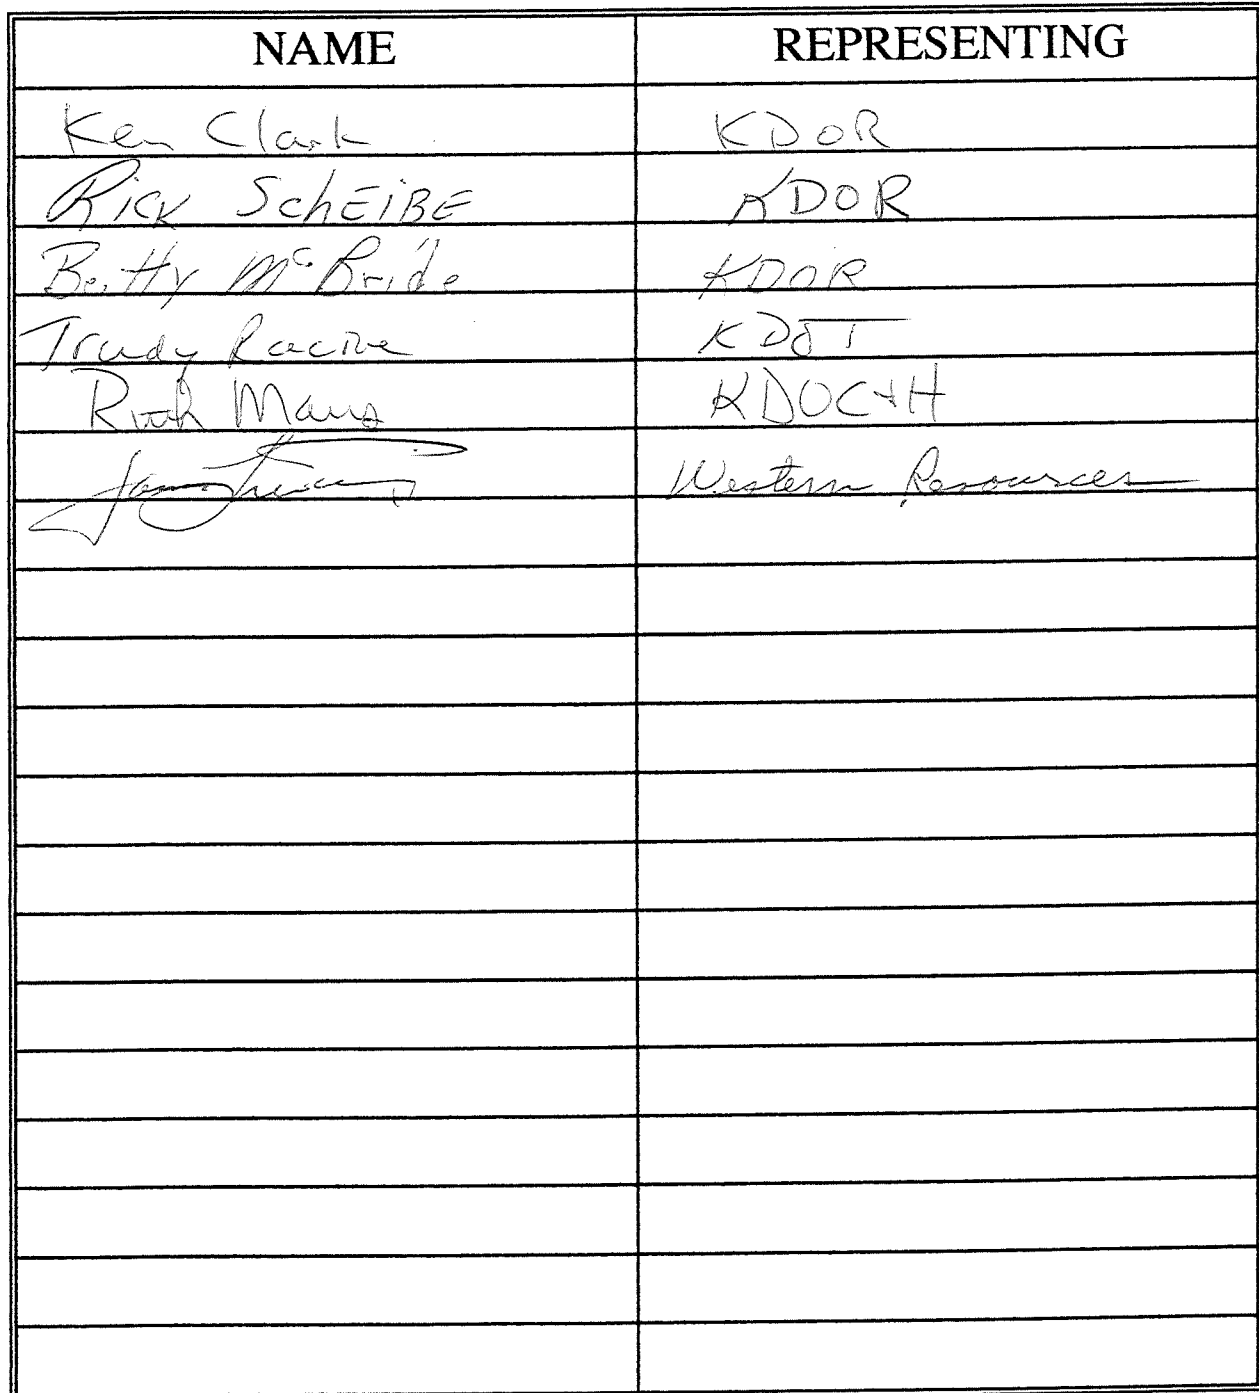 NAME REPRESENTING
Ken Clark KDOR
Rick SchEiBE KDOR
Betty McBride KDOR
Trudy Racine KDOT
Maus KDOC+H
Western Resources